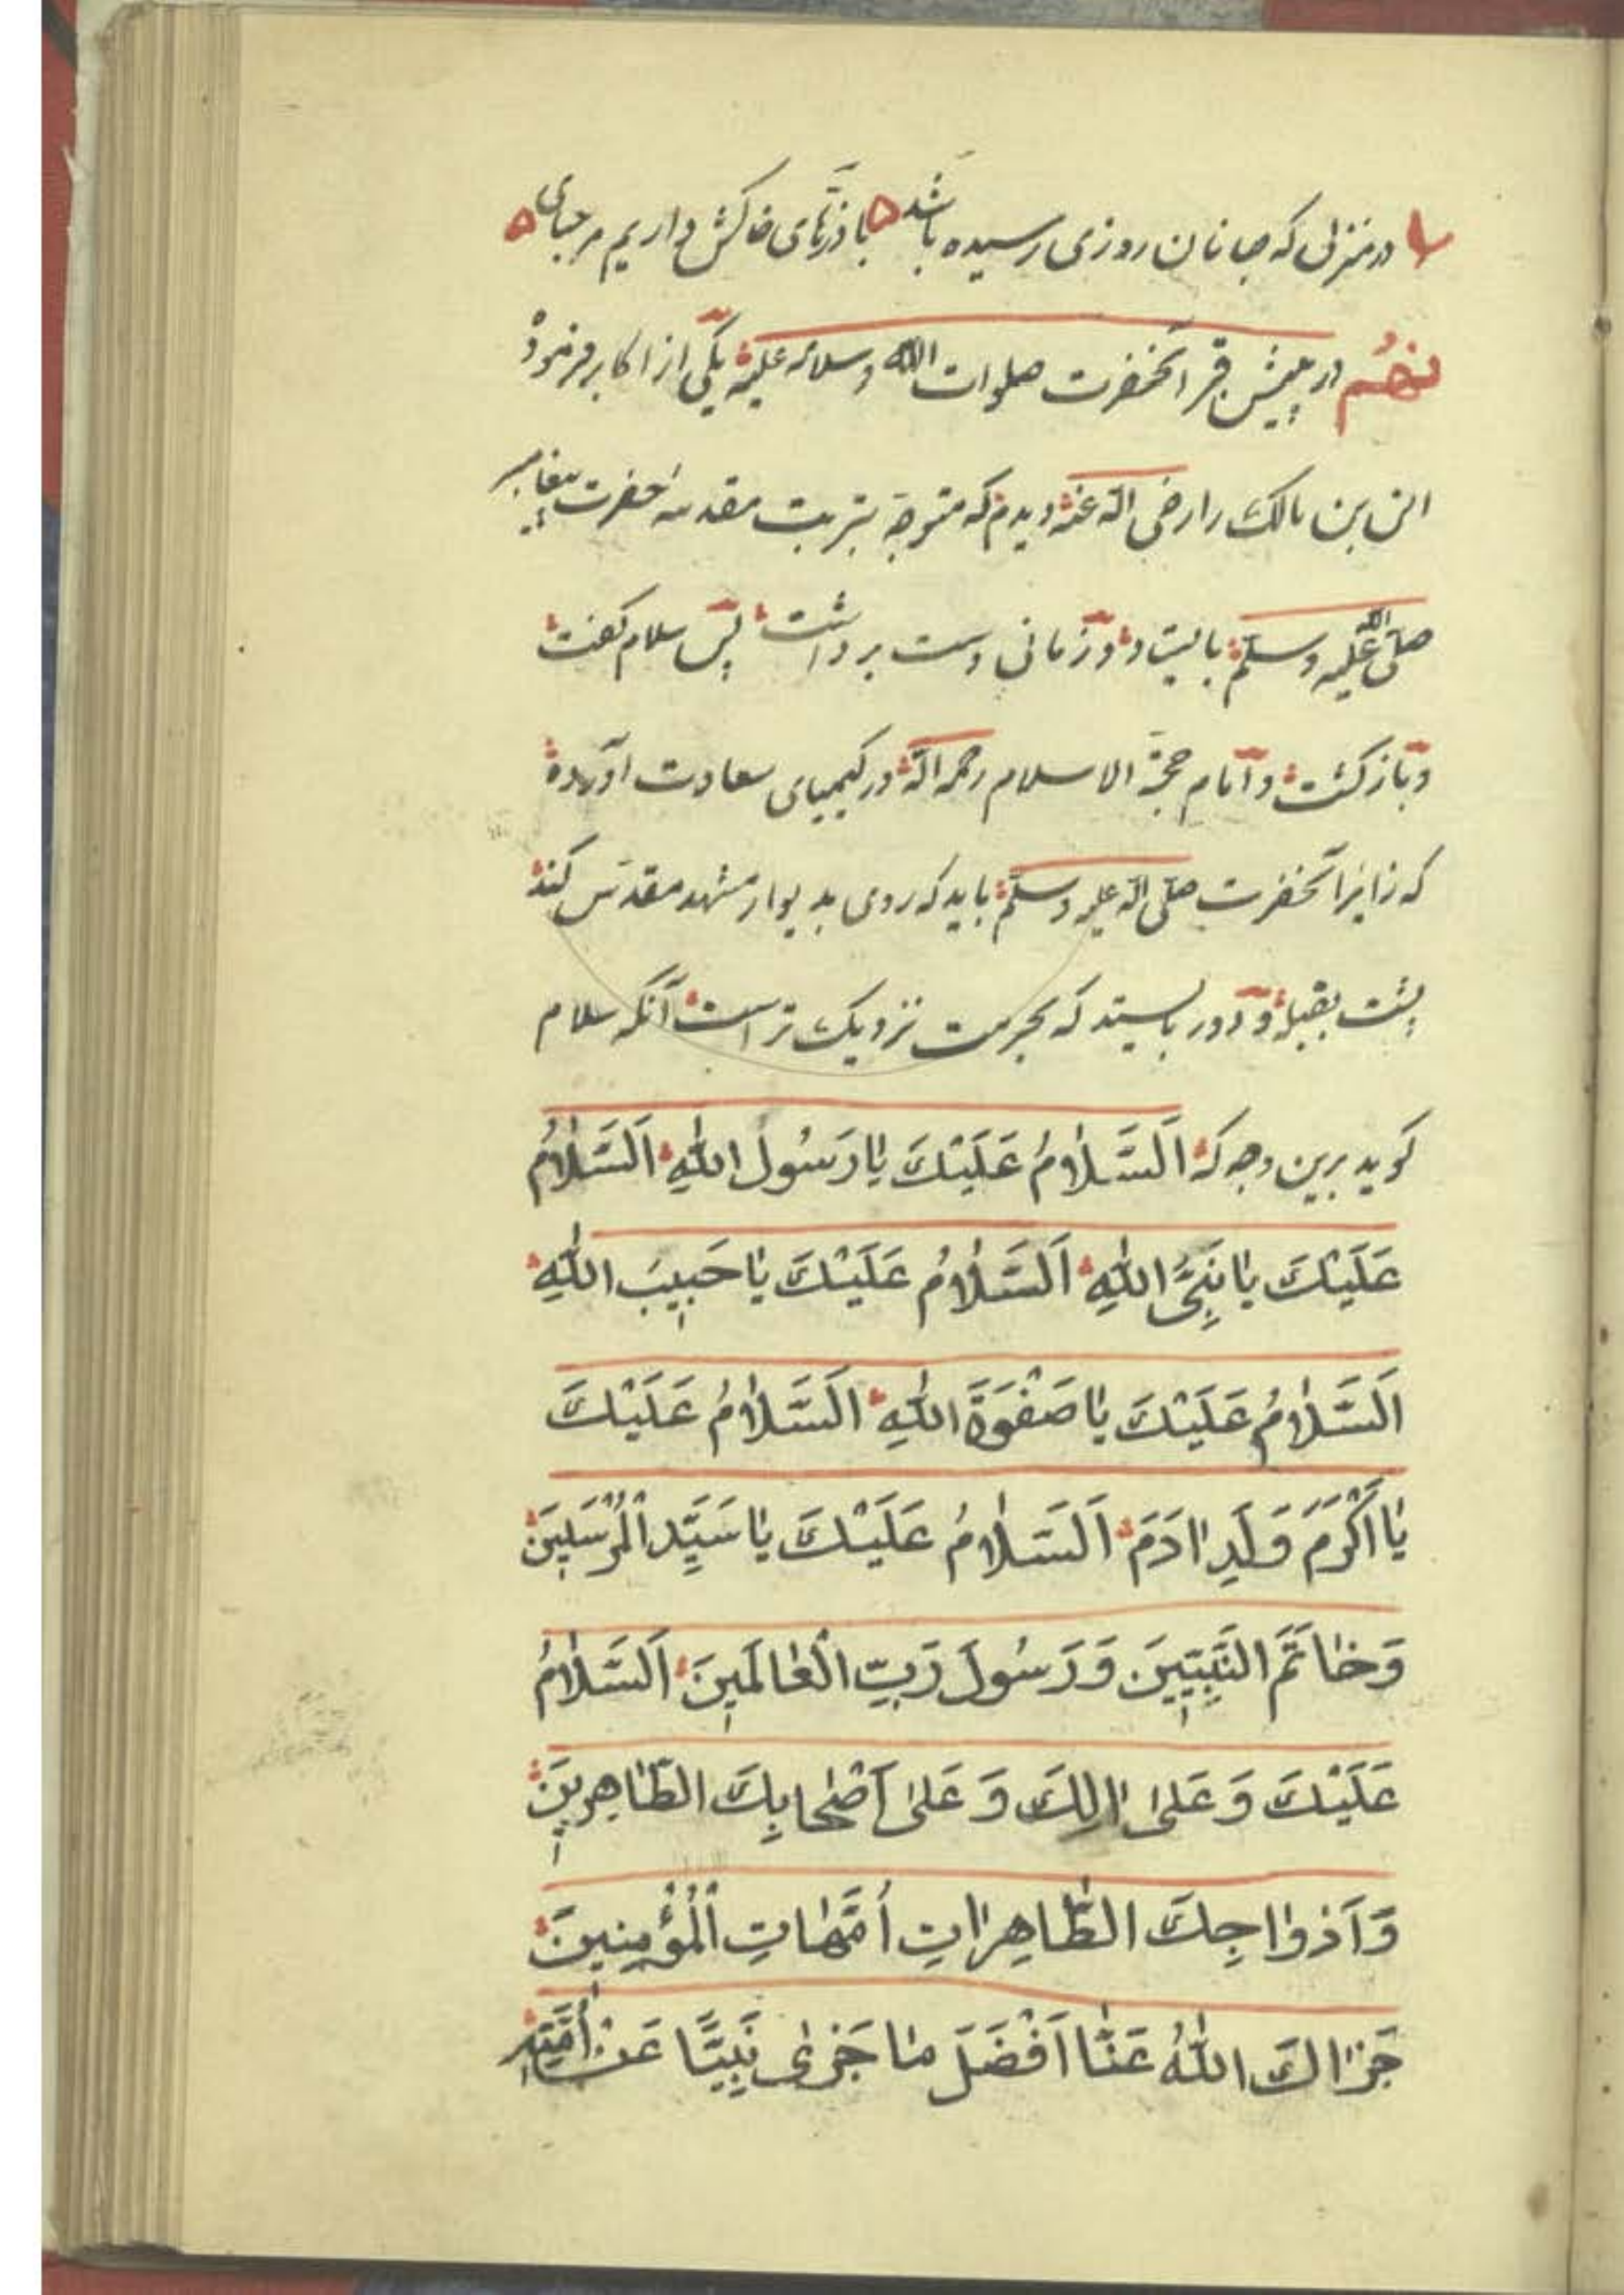 در منزلی که جانان روزی رسیده باشد با ذرّهای خاکش داریم مرحبای
نهم در پیش قبر آنحضرت صلوات الله و سلامه علیه یکی از اکابر فرمود
انس بن مالک را رضی الله عنه دیدم که متوجّه بتربت مقدسه حضرت پیغامبر
صلّی الله علیه وسلّم بایستاد و زمانی دست برداشت پس سلام کفت
و باز کشت و امام حجّة الاسلام رحمه الله در کیمیای سعادت آورده
که زایر آنحضرت صلّی الله علیه وسلّم باید که روی بدیوار مشهد مقدّس کند
پشت بقبله و دور بایستد که بحرمت نزدیک تر است آنکه سلام
کوید برین وجه که اَلسَّلامُ عَلَیْكَ یا رَسُولَ اللهِ اَلسَّلامُ
عَلَیْكَ یا نَبِیَّ اللهِ اَلسَّلامُ عَلَیْكَ یا حَبیبَ اللهِ
اَلسَّلامُ عَلَیْكَ یا صَفْوَةَ اللهِ اَلسَّلامُ عَلَیْكَ
یا اَکْرَمَ وَلَدِ ادَمَ اَلسَّلامُ عَلَیْكَ یا سَیِّدَ الْمُرْسَلینَ
وَ خاتَمَ النَّبِیّینَ وَ رَسُولَ رَبِّ الْعالَمینَ اَلسَّلامُ
عَلَیْكَ وَ عَلی الِكَ وَ عَلی اَصْحابِكَ الطّاهِرینَ
وَ اَزْواجِكَ الطّاهِراتِ اُمَّهاتِ الْمُؤْمِنینَ
جَزاكَ اللهُ عَنّا اَفْضَلَ ما جَزی نَبِیًّا عَنْ اُمَّتِهِ